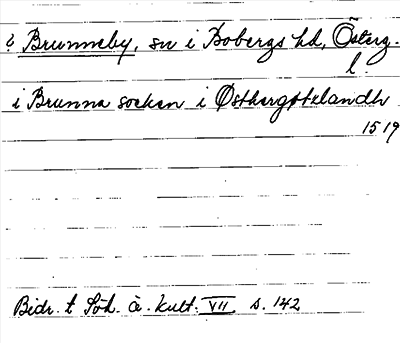 Brunneby, sn i Bobergs hd, Österg.
l.
i Brunna socken i Østhergøtelandh
1519
Bidr. t Söh. ä. kult. VII s. 142